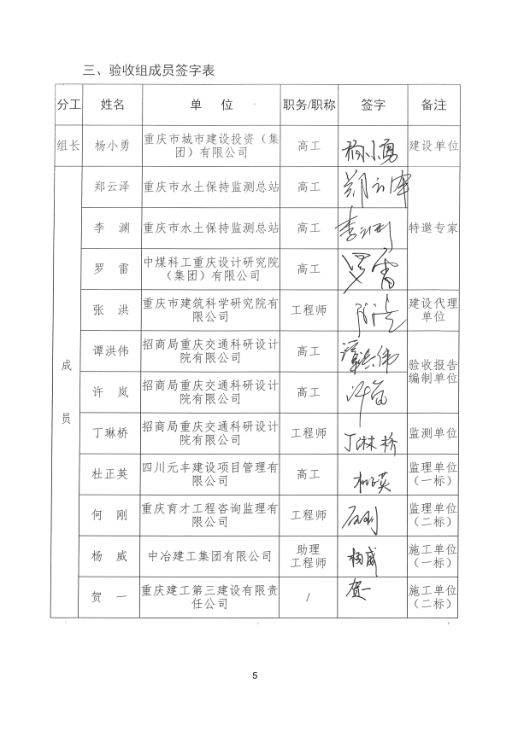 三、验收组成员签字表
分工 姓名 单 位 职务/职称 签字 备注
组长 杨小勇 重庆市城市建设投资（集
团）有限公司 高工 杨小勇 建设单位
成
员
郑云泽 重庆市水土保持监测总站 高工 郑云泽
李 渊 重庆市水土保持监测总站 高工 李渊 特邀专家
罗 雷 中煤科工重庆设计研究院
（集团）有限公司 高工 罗雷
张 洪 重庆市建筑科学研究院有
限公司 工程师 建设代理
单位
谭洪伟 招商局重庆交通科研设计
院有限公司 高工 谭洪伟 验收报告
编制单位
许 岚 招商局重庆交通科研设计
院有限公司 高工 许岚
丁琳桥 招商局重庆交通科研设计
院有限公司 工程师 丁琳桥 监测单位
杜正英 四川元丰建设项目管理有
限公司 高工 杜正英 监理单位
（一标）
何 刚 重庆育才工程咨询监理有
限公司 工程师 监理单位
（二标）
杨 威 中冶建工集团有限公司 助理
工程师 杨威 施工单位
（一标）
贺 一 重庆建工第三建设有限责
任公司 / 贺一 施工单位
（二标）
5